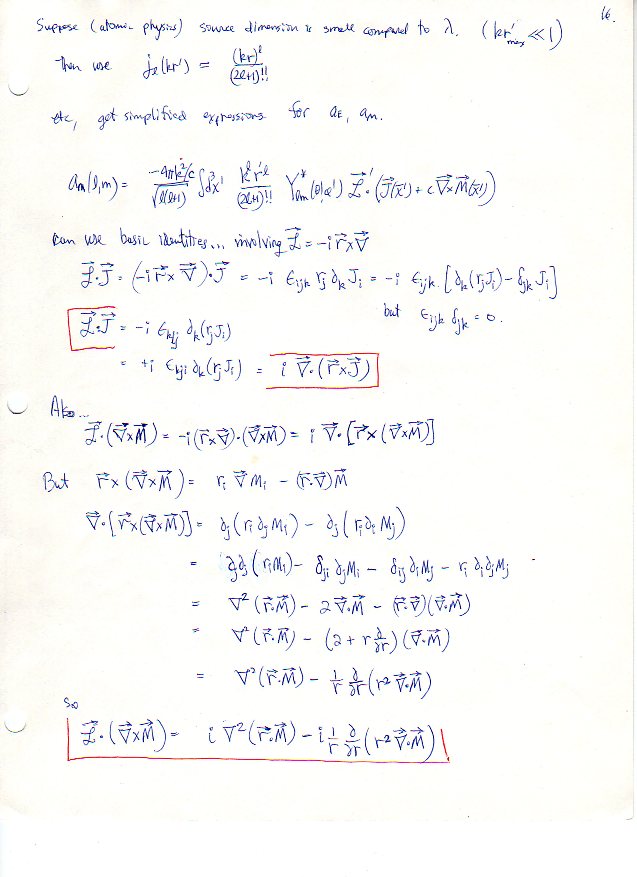 16.
Suppose (atomic physics) source dimension is small compared to λ. (kr'max ≪ 1)
Then use jℓ(kr') = (kr)^ℓ / (2ℓ+1)!!
etc, get simplified expressions for aE, am.
am(l,m) = -4πk²/c / √(l(l+1)) ∫d³x' k^l r'^l / (2l+1)!! Y*lm(θ',φ') L⃗'·(J⃗(x⃗') + c ∇⃗×M⃗(x⃗'))
can use basic identities... involving L⃗ = -i r⃗×∇⃗
L⃗·J⃗ = (-i r⃗×∇⃗)·J⃗ = -i εijk rj ∂k Ji = -i εijk [∂k(rjJi) - δjk Ji]
but εijk δjk = 0.
L⃗·J⃗ = -i εkij ∂k(rjJi)
= +i εkji ∂k(rjJi) = i ∇⃗·(r⃗×J⃗)
Also...
L⃗·(∇⃗×M⃗) = -i(r⃗×∇⃗)·(∇⃗×M⃗) = i ∇⃗·[r⃗×(∇⃗×M⃗)]
But r⃗×(∇⃗×M⃗) = ri ∇⃗Mi - (r⃗·∇⃗)M⃗
∇⃗·[r⃗×(∇⃗×M⃗)] = ∂j(ri∂jMi) - ∂j(ri∂iMj)
= ∂j∂j(riMi) - δji ∂jMi - δij ∂iMj - ri ∂i∂jMj
= ∇²(r⃗·M⃗) - 2∇⃗·M⃗ - (r⃗·∇⃗)(∇⃗·M⃗)
= ∇²(r⃗·M⃗) - (2 + r ∂/∂r)(∇⃗·M⃗)
= ∇²(r⃗·M⃗) - 1/r ∂/∂r(r² ∇⃗·M⃗)
So
L⃗·(∇⃗×M⃗) = i ∇²(r⃗·M⃗) - i 1/r ∂/∂r(r² ∇⃗·M⃗)